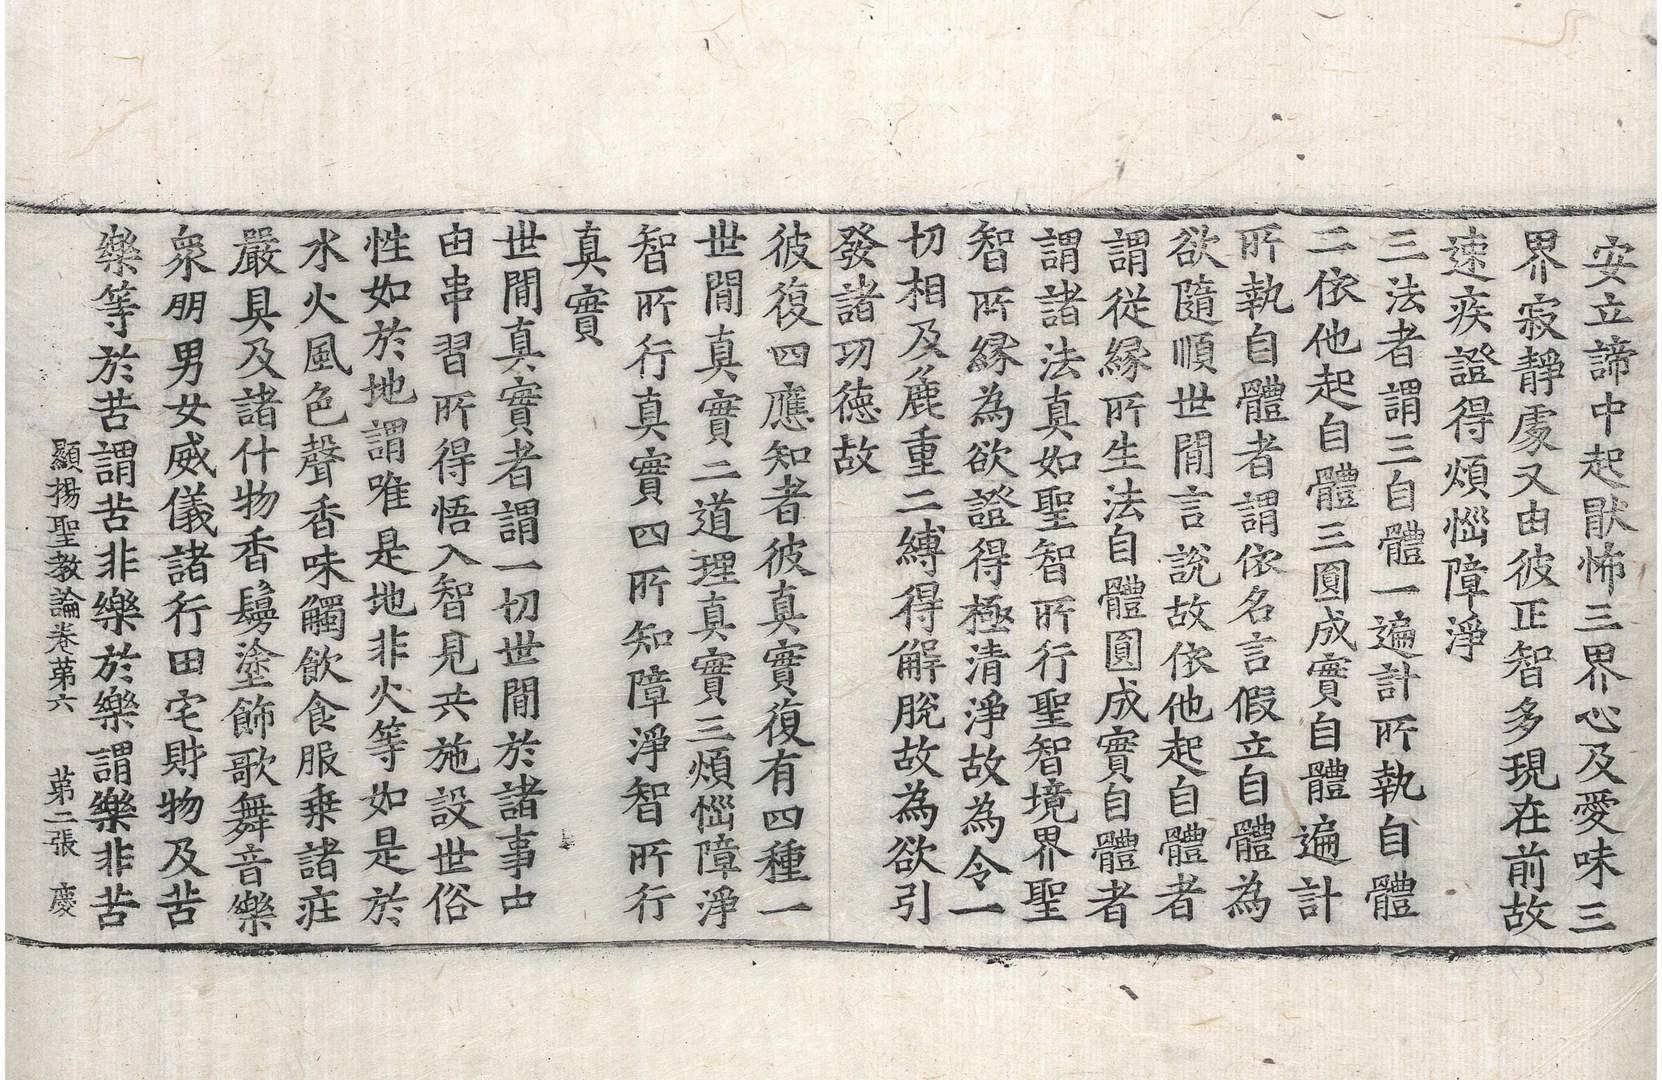 安立諦中起猒怖三界心及愛味三
界寂靜處又由彼正智多現在前故
速疾證得煩惱障淨
三法者謂三自體一遍計所執自體
二依他起自體三圓成實自體遍計
所執自體者謂依名言假立自體為
欲隨順世間言說故依他起自體者
謂從緣所生法自體圓成實自體者
謂諸法真如聖智所行聖智境界聖
智所緣為欲證得極清淨故為令一
切相及麁重二縛得解脫故為欲引
發諸功德故
彼復四應知者彼真實復有四種一
世間真實二道理真實三煩惱障淨
智所行真實四所知障淨智所行
真實
世間真實者謂一切世間於諸事由
由串習所得悟入智見共施設世俗
性如於地謂唯是地非火等如是於
水火風色聲香味觸飲食服乗諸莊
嚴具及諸什物香鬘塗飾歌舞音樂
衆朋男女威儀諸行田宅財物及苦
樂等於苦謂苦非樂於樂謂樂非苦
顯揚聖教論卷苐六 苐二張 慶